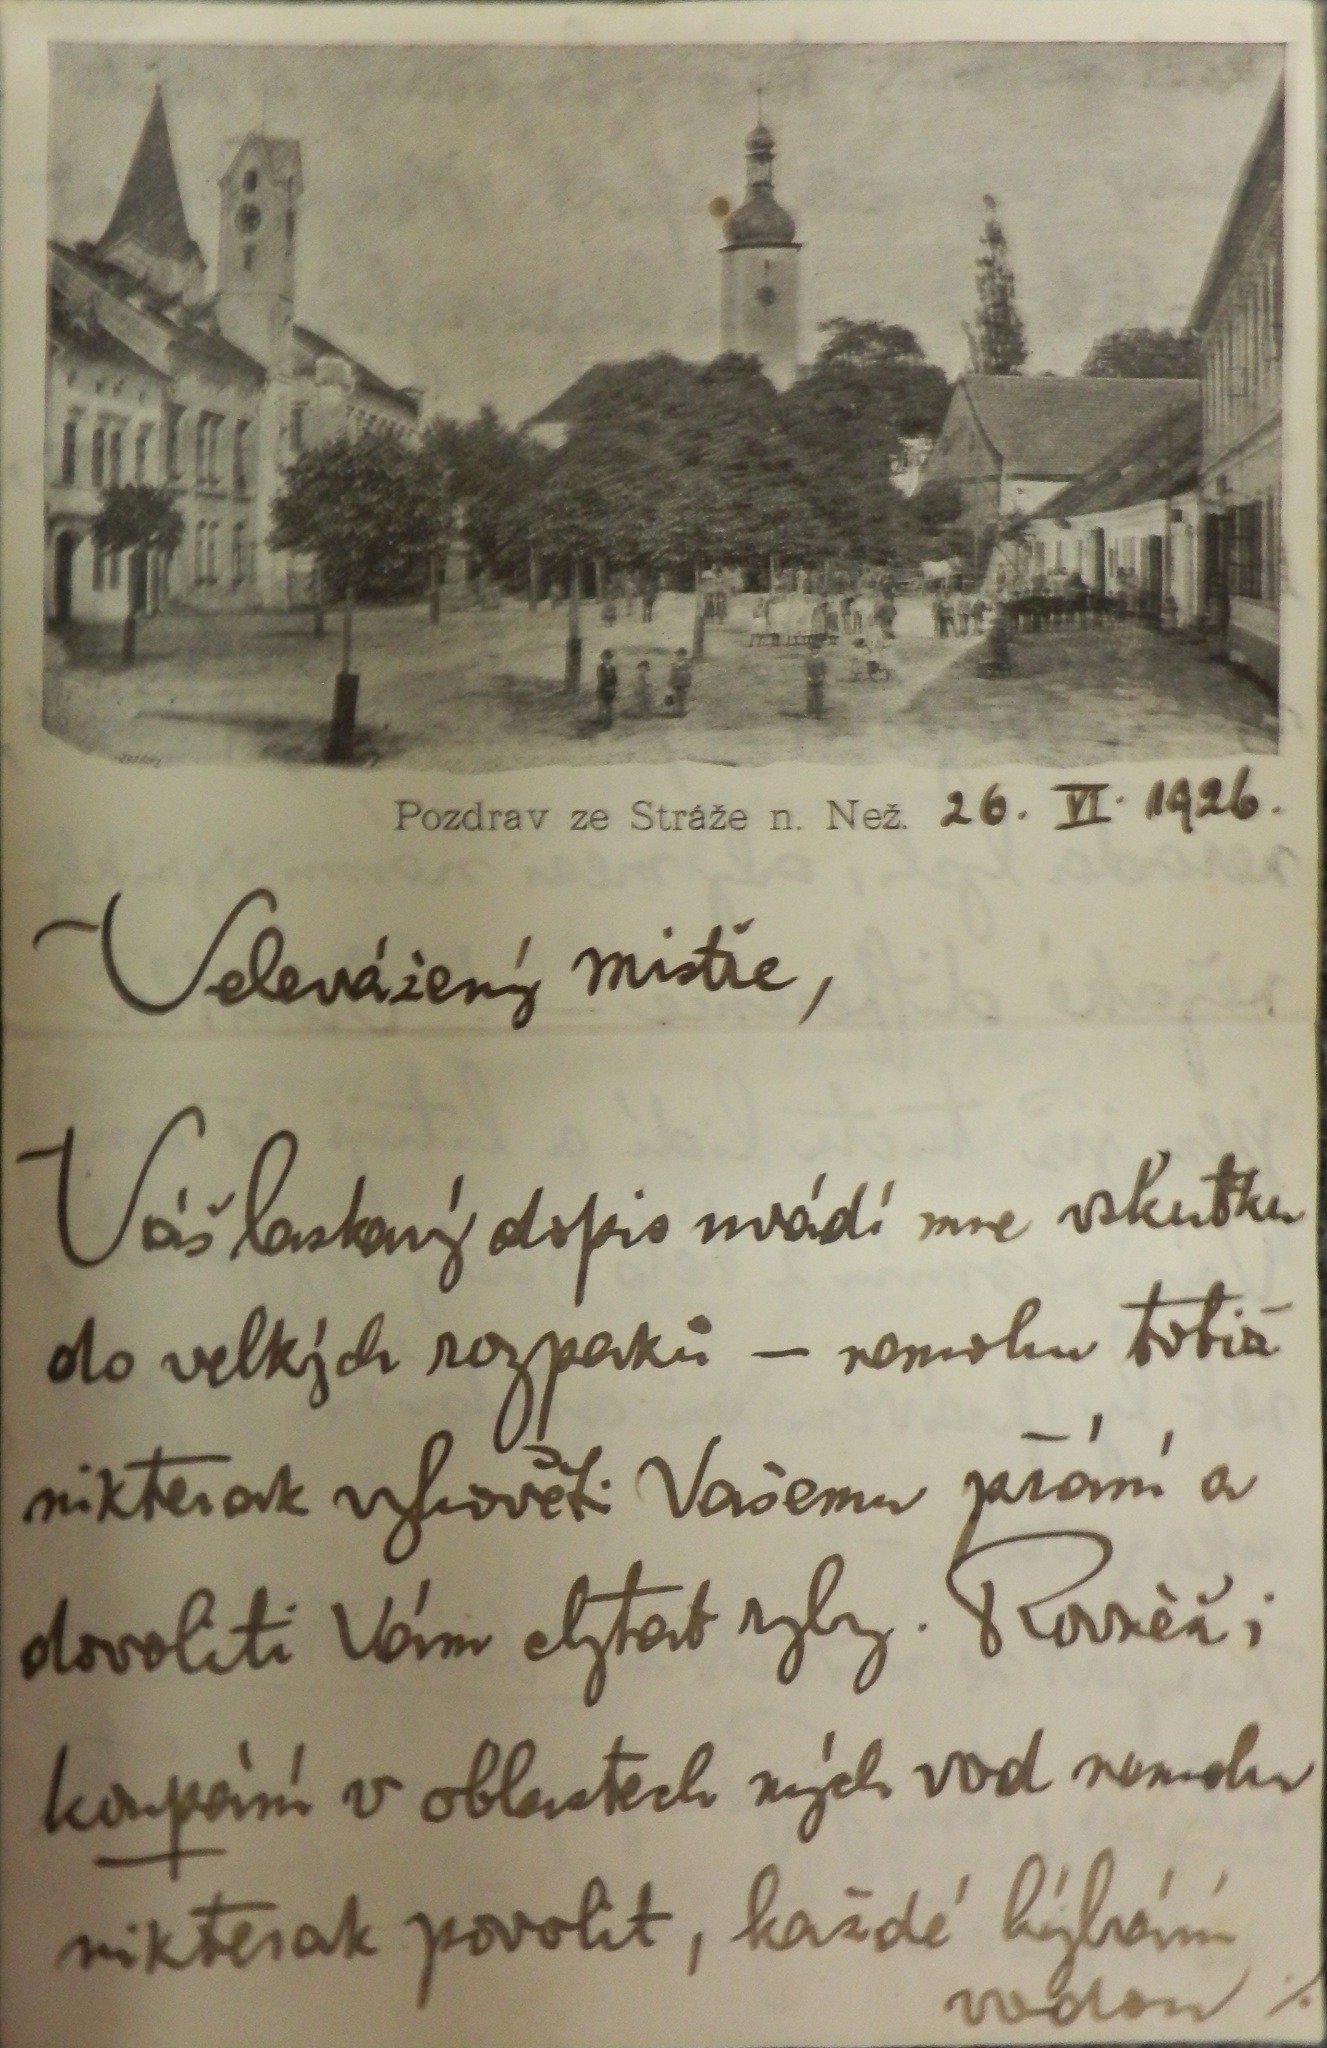 Pozdrav ze Stráže n. Než. 26. VI. 1926.
Velevážený mistře,
Váš laskavý dopis uvádí mne vskutku
do velkých rozpaků – nemohu totiž
nikterak vyhověti Vašemu přání a
dovoliti Vám chytat ryby. Rovněž i
koupání v oblastech mých vod nemohu
nikterak povolit, každé hýbání
vodou ./.